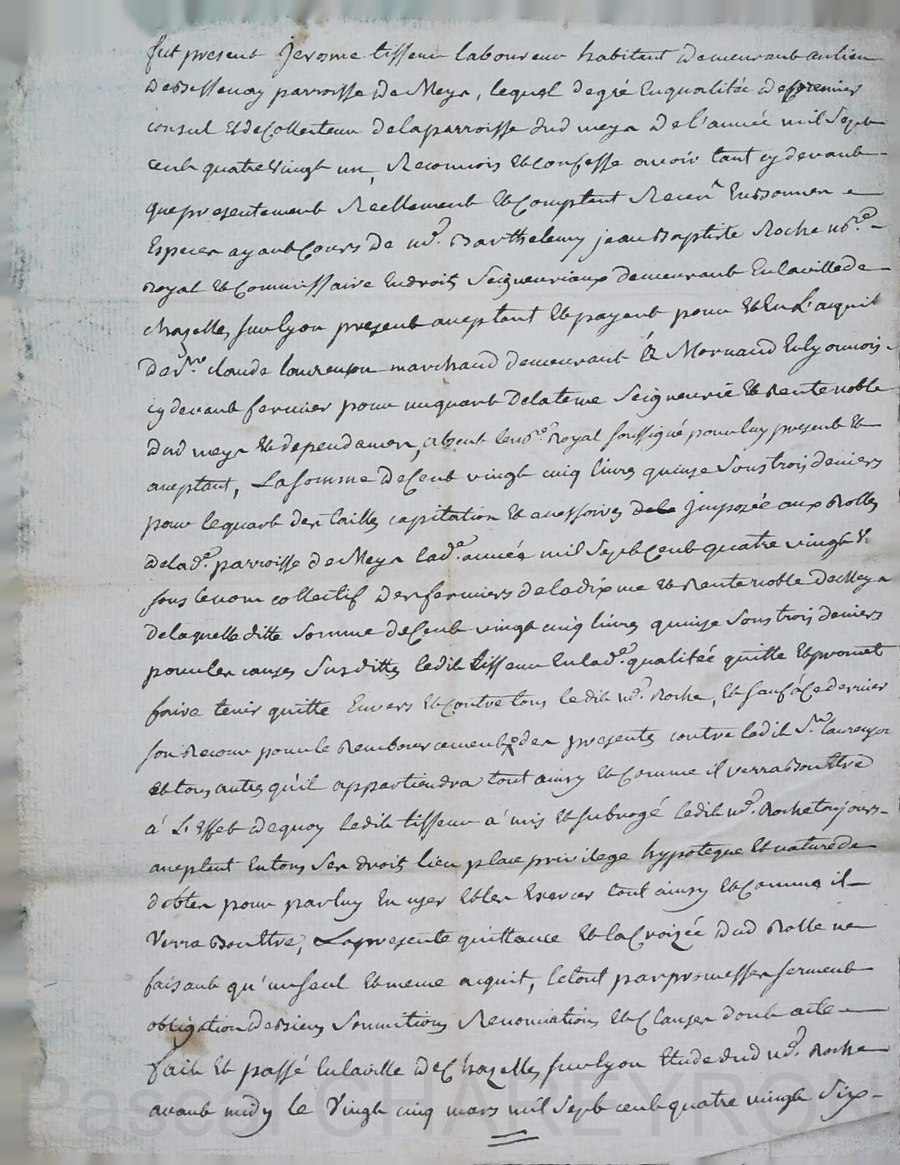 fut present Jerome tisseur laboureur habitant demeurant au lieu
de Meys, lequel de gré En qualité de premier
consul Et de Collecteur de la parroisse dud meys de l'année mil Sept
cent quatre Vingt un, Reconnois Et confesse avoir tant cy devant
que presentement Réellement Et Comptant Receu En bonnes
Especes ayant Cours de mr. Barthelemy jean Baptiste Roche nore.
Royal Et Commissaire En droit Seigneuriaux demeurant En la ville de
chazelles sur lyon present aceptant Et payant pour Et En L'acquit
de Sr. claude laurenson marchand demeurant à Mornand En lyonnois
cy devant fermier pour un quart de la terre Seigneurie Et Rente noble
dud meys Et dependances, absent le nore. Royal soussigné pour luy present Et
aceptant, La somme de Cent vingt cinq livres quinze Sous trois deniers
pour le quart des tailles capitation Et acessoires imposée aux Rolles
de lade. parroisse de Meys lade. année mil Sept Cent quatre vingt &
sous le nom collectif des fermiers de la dixme Et Rente noble de Meys
de laquelle ditte Somme de Cent vingt cinq livres quinze Sous trois deniers
pour les causes Susdittes ledit tisseur En lade. qualité quitte Et promet
faire tenir quitte Envers Et contre tous ledit mr. Roche, Et sauf à Ce dernier
son Recour pour le Remboursement des presentes contre ledit Sr. laurenson
Et tous autres qu'il appartiendra tout ainsy Et Comme il verra Bon Etre
à L'Effet de quoy ledit tisseur à mis Et subrogé ledit mr. Roche toujours
aceptent En tous Ses droit lieu place privilege hypoteque Et nature de
debtes pour par luy En user Et les Exercer tout ainsy Et Comme il
Verra Bon Etre, La presente quittance Et la Croizée dud Rolle ne
faisant qu'un seul Et meme acquit, le tout par promesses serment
obligation de biens Soumitions Renonciations Et Clauses dont acte
fait Et passé En la ville de Chazelles sur lyon Etude dud mr. Roche
avant midy le Vingt cinq mars mil Sept cent quatre vingt Six
Pascal CHAREYRON